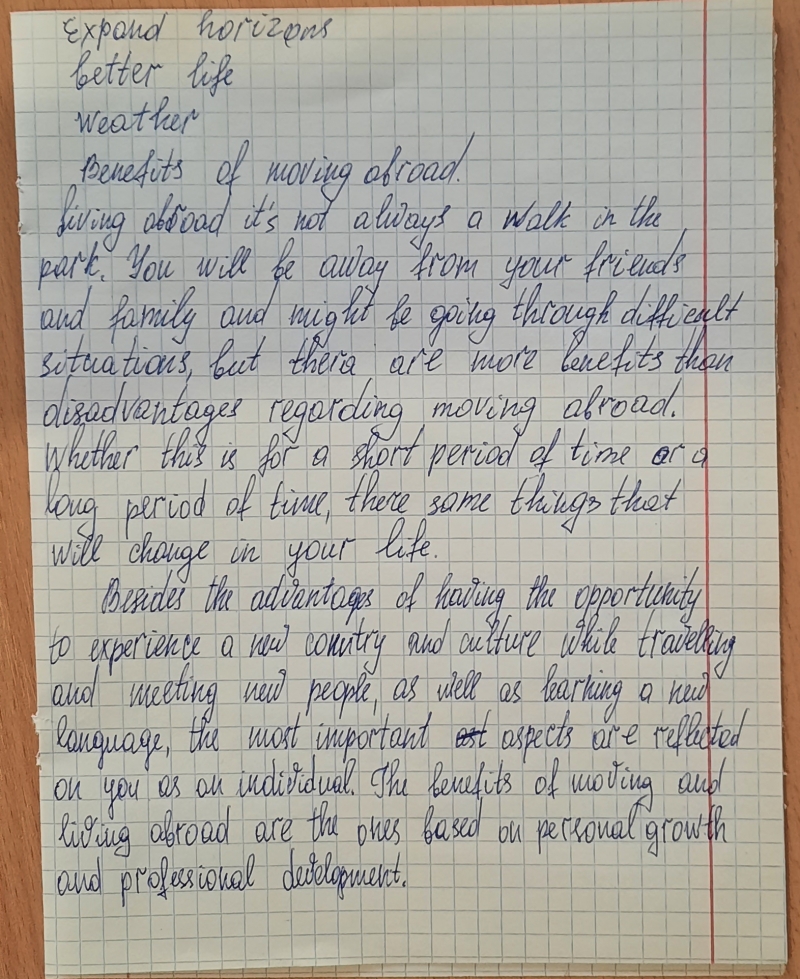 Expand horizons
better life
Weather
Benefits of moving abroad.
Living abroad it's not always a walk in the
park. You will be away from your friends
and family and might be going through difficult
situations, but thera are more benefits than
disadvantages regarding moving abroad.
Whether this is for a short period of time or a
long period of time, there same things that
will change in your life.
Besides the advantages of having the opportunity
to experience a new conutry and culture while travelling
and meeting new people, as well as learning a new
language, the most important aspects are reflected
on you as an individual. The benefits of moving and
living abroad are the ones based on personal growth
and professional development.